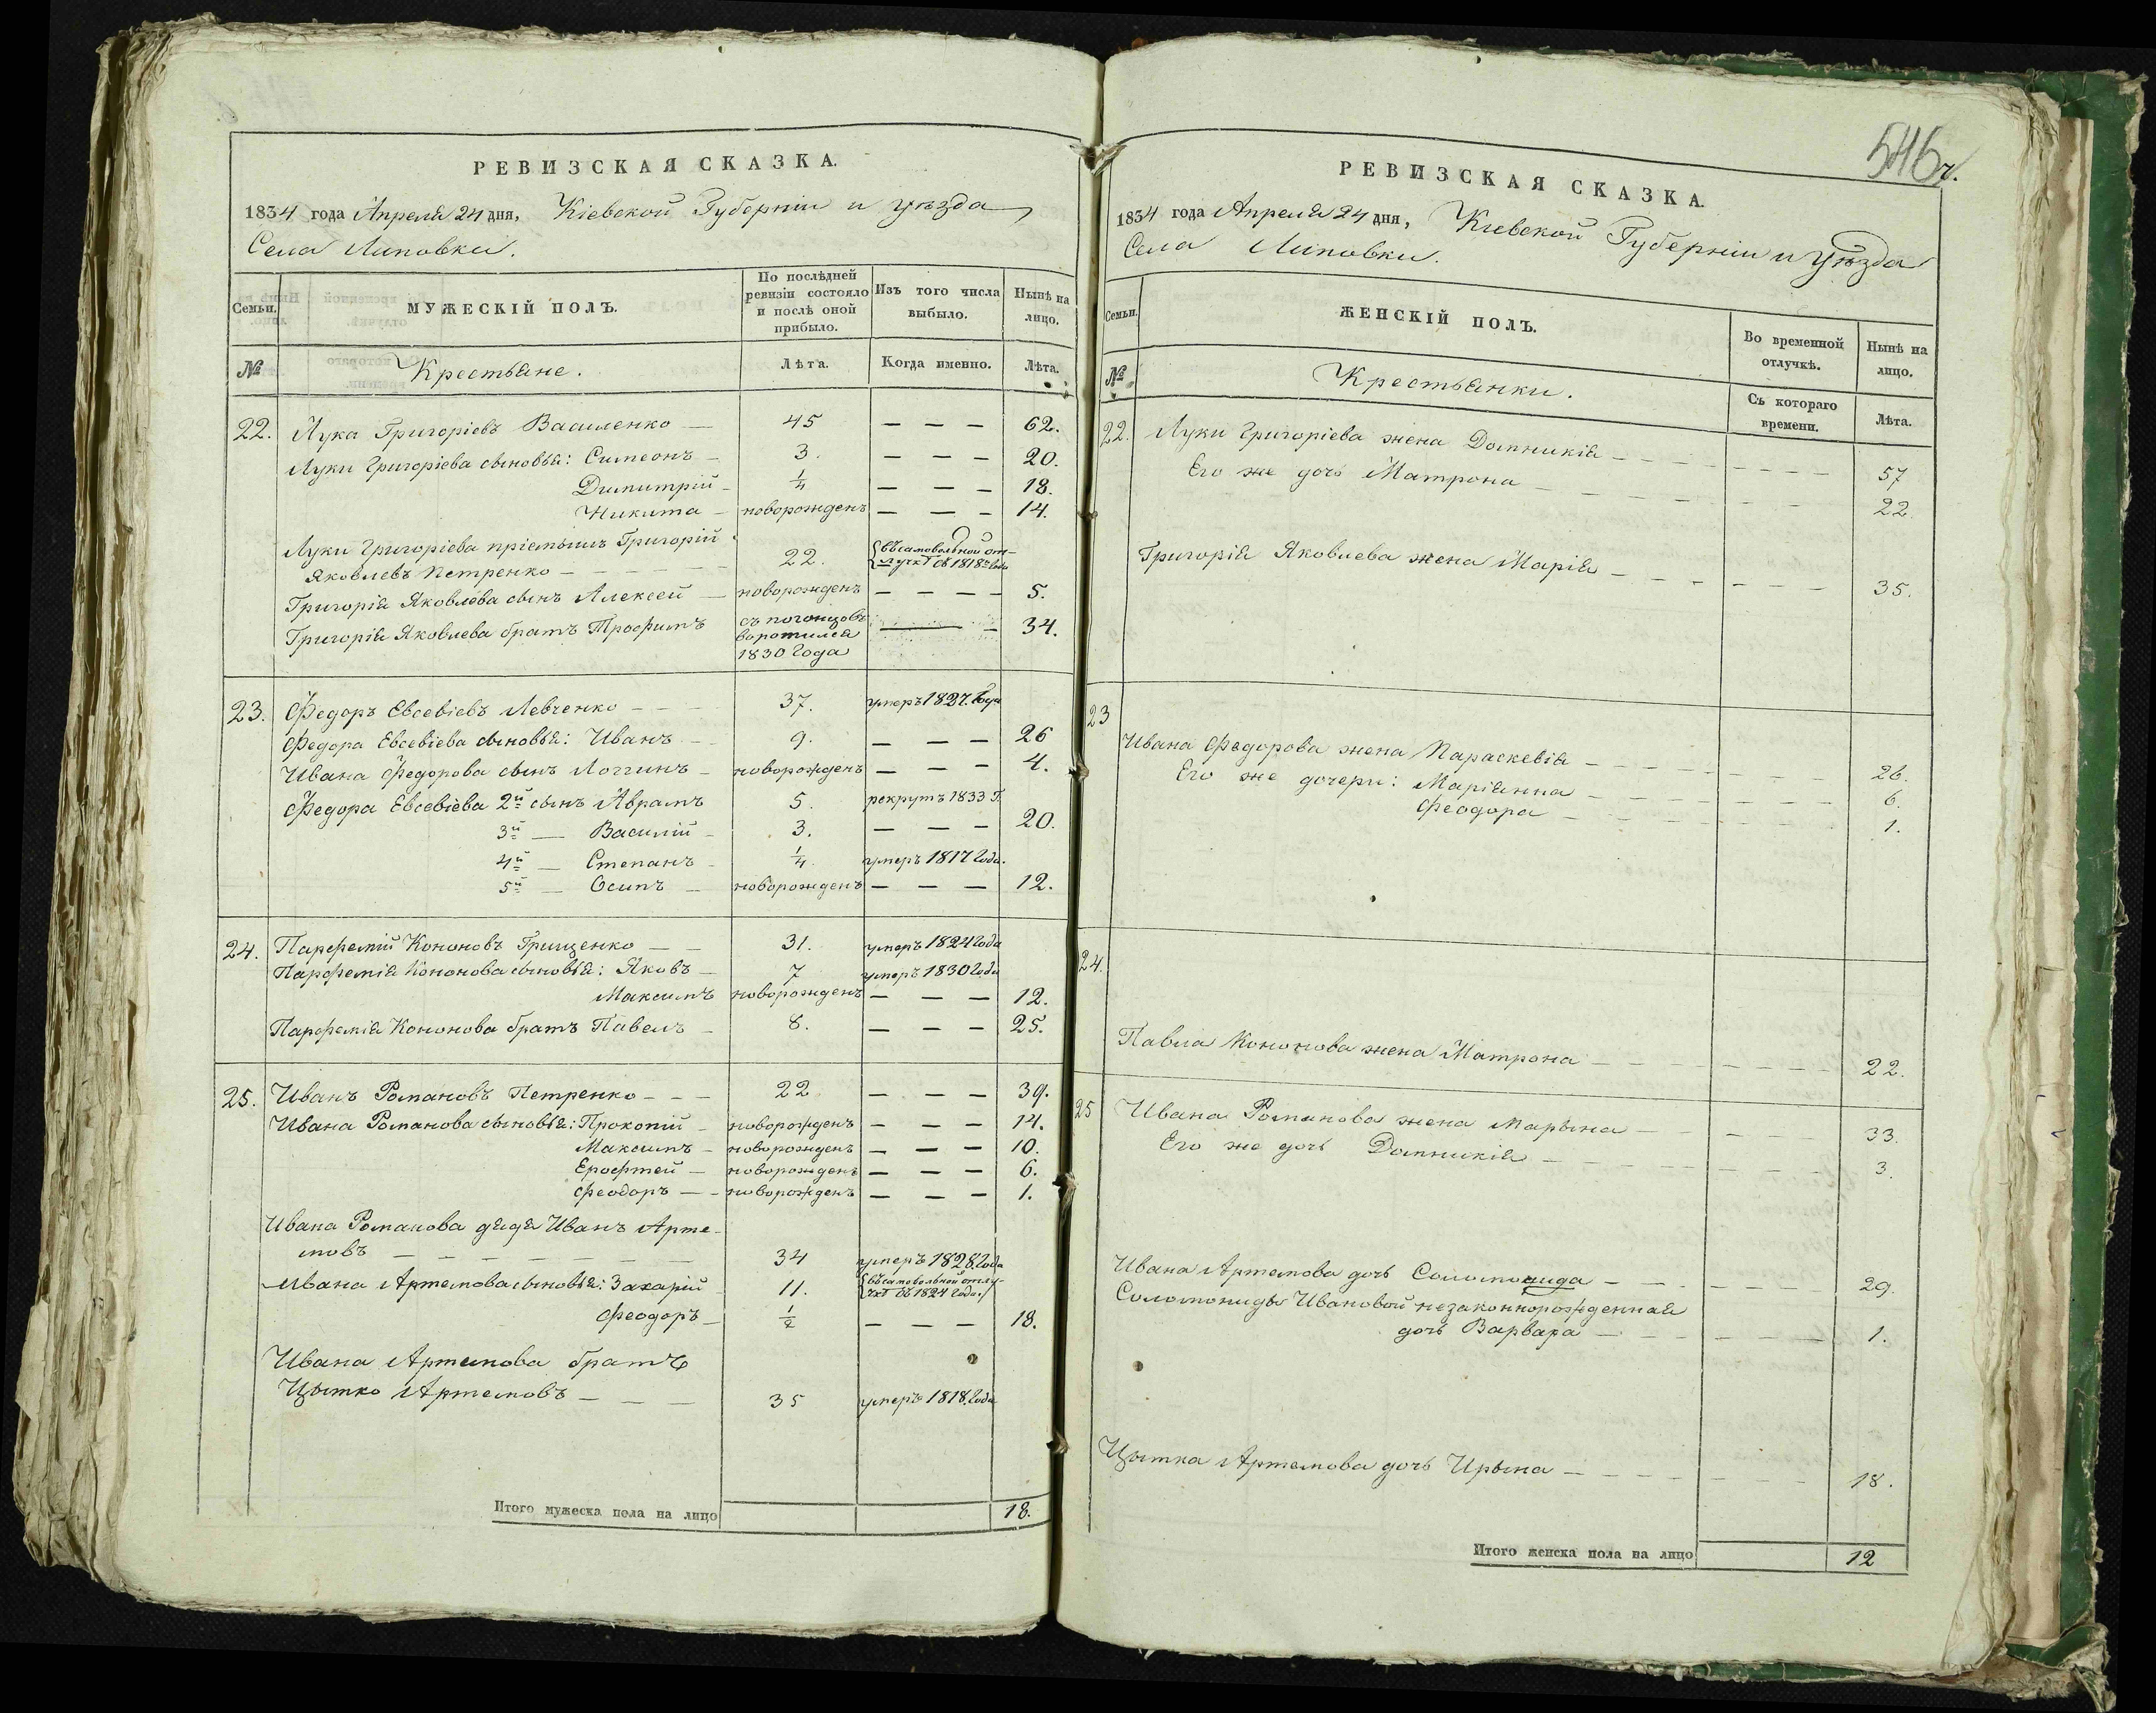 РЕВИЗСКАЯ СКАЗКА.
1834 года Апреля 24 дня, Кіевской Губерніи и уѣзда
Села Липовки.
Семьи. МУЖЕСКІЙ ПОЛЪ. По послѣдней ревизіи состояло и послѣ оной прибыло. Изъ того числа выбыло. Нынѣ на лицо.
№ Крестьяне. Лѣта. Когда именно. Лѣта.
22. Лука Григоріевъ Василенко — 45 — — — 62.
Луки Григоріева сыновья: Симеонъ — 3. — — — 20.
Димитрій — 1/4 — — — 18.
Никита — новорожденъ — — — 14.
Луки Григоріева пріемышъ Григорій
Яковлевъ Петренко — — — — 22. въ самовольной от-
лучкѣ съ 1818го Года
Григорія Яковлева сынъ Алексей — новорожденъ — — — — 5.
Григорія Яковлева братъ Трофимъ съ погонцовъ — — 34.
воротился
1830 Года
23. Федоръ Евсевіевъ Левченко — — — 37. умеръ 1827. Года
Федора Евсевіева сыновья: Иванъ — — 9. — — — 26
Ивана Федорова сынъ Логгинъ — новорожденъ — — — 4.
Федора Евсевіева 2й сынъ Аврамъ 5. рекрутъ 1833 Г.
3й — Василій — 3. — — — 20.
4й — Степанъ — 1/4. умеръ 1817 Года.
5й — Осипъ — новорожденъ — — — 12.
24. Парфемій Кононовъ Грищенко — — 31. умеръ 1824 Года
Парфемія Кононова сыновья: Яковъ — 7 умеръ 1830 Года
Максимъ новорожденъ — — — 12.
Парфемія Кононова братъ Павелъ — 8. — — — 25.
25. Иванъ Романовъ Петренко — — — 22 — — — 39.
Ивана Романова сыновья: Прокопій — новорожденъ — — — 14.
Максимъ — новорожденъ — — — 10.
Ерофтей — новорожденъ — — — 6.
Феодоръ — — новорожденъ — — — 1.
Ивана Романова дядя Иванъ Арте-
мовъ — — — — — — — 34 умеръ 1828 Года
Ивана Артемова сыновья: Захарій 11. въ самовольной отлу-
чкѣ съ 1824 Года.
Феодоръ — 1/2 — — — 18.
Ивана Артемова братъ
Цытко Артемовъ — — — 35 умеръ 1818. Года
Итого мужеска пола на лицо 18.
546
РЕВИЗСКАЯ СКАЗКА.
1834 года Апреля 24 дня, Кіевской Губерніи и Уѣзда
Села Липовки.
Семьи. ЖЕНСКІЙ ПОЛЪ. Во временной отлучкѣ. Нынѣ на лицо.
№ Крестьянки. Съ котораго времени. Лѣта.
22. Луки Григоріева жена Домникія — — — — — — 57
Его же дочь Матрона — — — — — — 22
Григорія Яковлева жена Марія — — — — — — 35.
23
Ивана Федорова жена Параскевія — — — — — — 26.
Его же дочери: Маріянна — — — — — — 6.
Феодора — — — — — — 1.
24.
Павла Кононова жена Матрона — — — — — — 22.
25 Ивана Романова жена Марына — — — — — — 33.
Его же дочь Домникія — — — — — — 3.
Ивана Артемова дочь Соломонида — — — — — 29.
Соломониды Ивановой незаконнорожденная
дочь Варвара — — — — — — 1.
Цытка Артемова дочь Ирына — — — — — — 18.
Итого женска пола на лицо 12